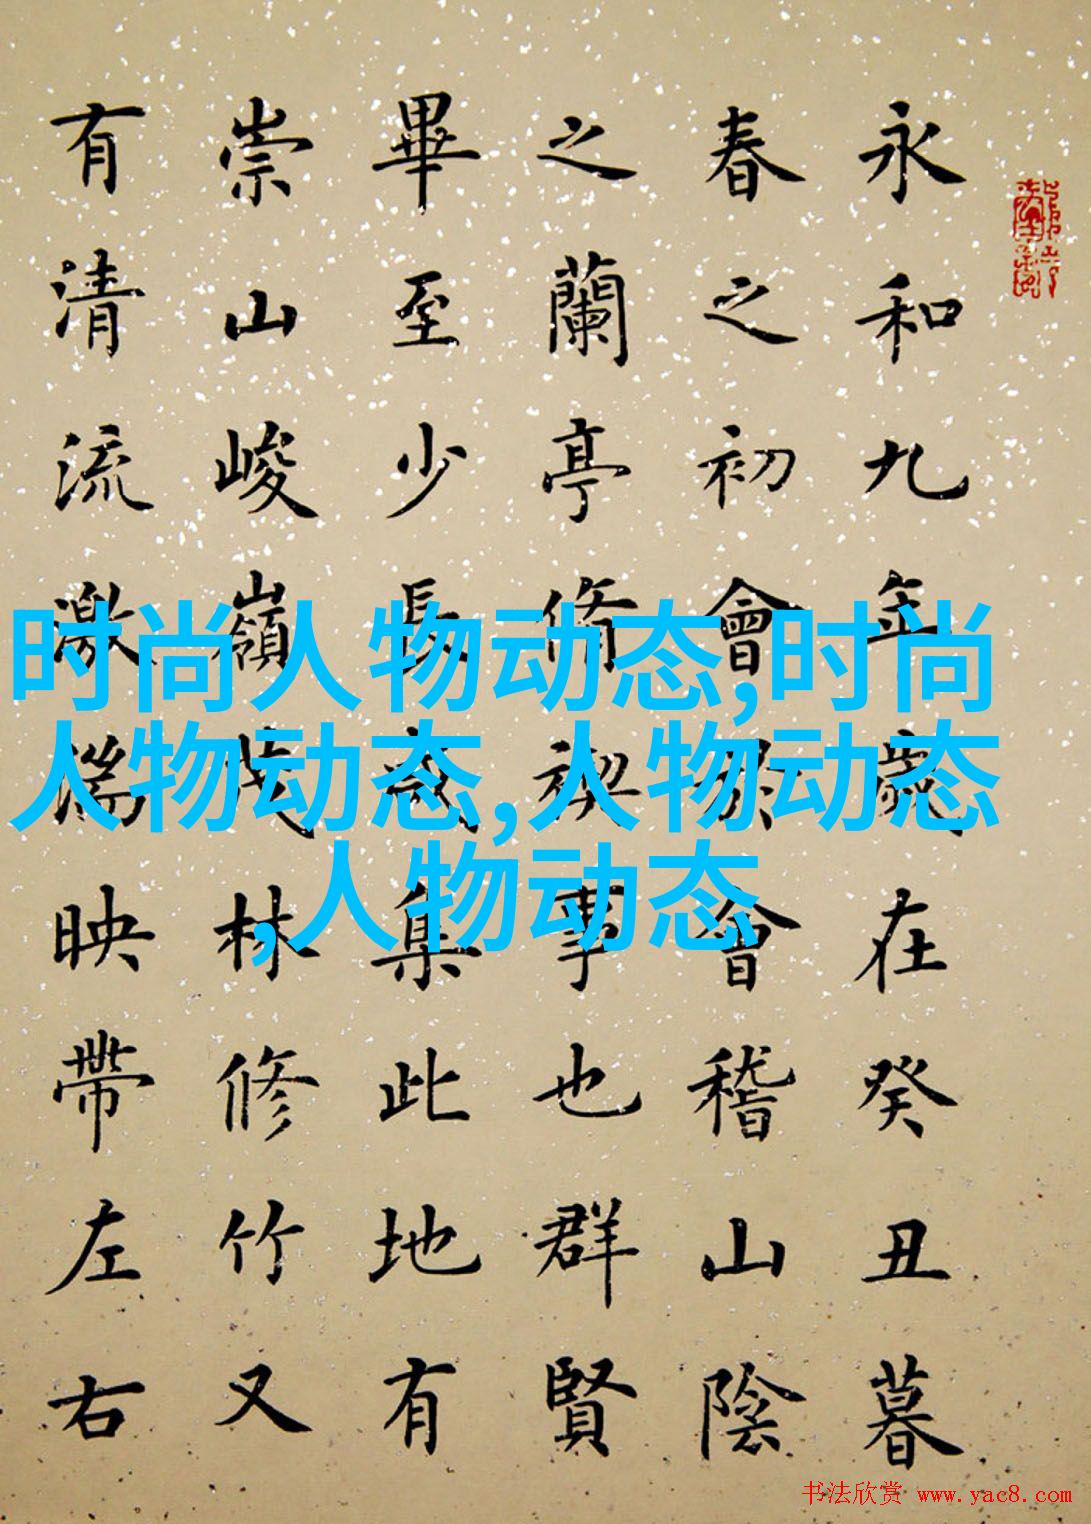 永和九年歲在癸丑暮
春之初會於會稽山陰
之蘭亭脩禊事也群賢
畢至少長咸集此地有
崇山峻嶺茂林修竹又
有清流激湍映帶左右
时尚人物动态,时尚
人物动态,人物动态
,人物动态
书法欣赏 www.yac8.com